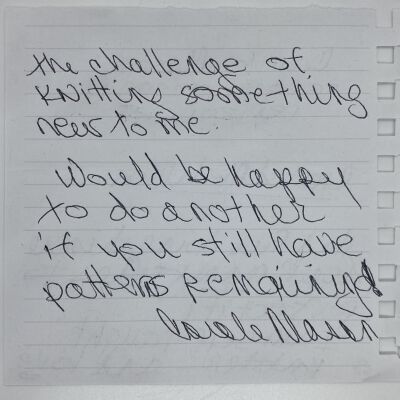 the challenge of
knitting something
new to me.
Would be happy
to do another
if you still have
patterns remaining